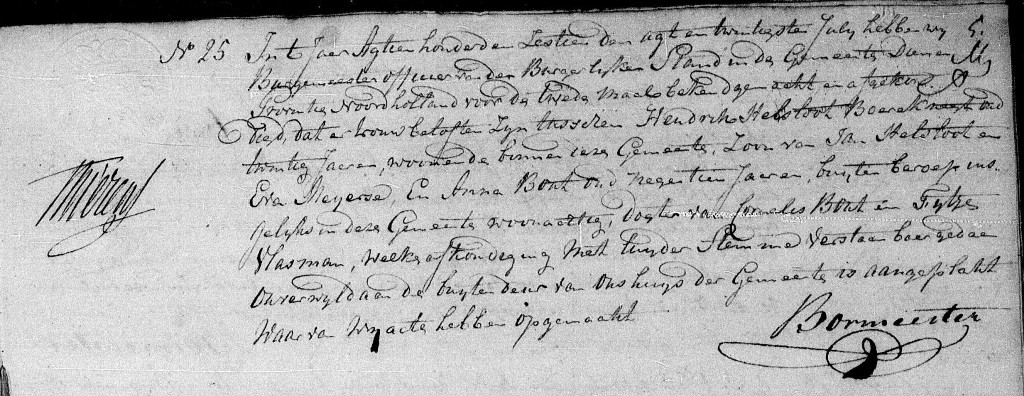 No 25 Int Jaer Agtien honderd en Zestien den agt en twintigsten July hebben wy
Burgemeester officier van den Burgerlyken Stand in de Gemeente Diemen
Provintie Noordholland voor de tweede maal bekend gemacht en afgekon
digd, dat er trouwbeloften zyn tusschen Hendrik Helsloot Boereknegt oud
twintig Jaeren, woonende binnen deze Gemeente, Zoon van Jan Helsloot en
Eva Meyerse, En Anna Bont oud negentien Jaeren, buyten beroep ins.
gelyks in deze Gemeente woonachtig, dogter van Cornelis Bont en Fytze
Vlasman, welke afkondeging met luyder Stemme Verstaanbaer gedaen
onverwyld aan de buytendeur van ons huys der Gemeente is aangeplakt
Waar van wy acte hebben opgemaakt
Bormeester